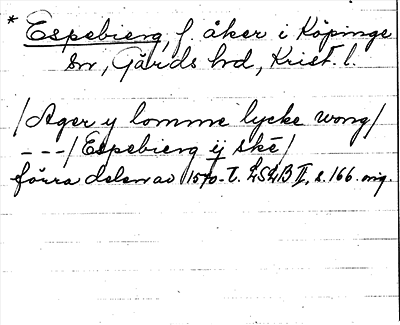 * Espebierg, f. åker i Köpinge
sn, Gärds hd, Krist. l.
/Ager y lomme lycke wong/
---/Espebierg ij ske/
förra delen av 1570-t. LSLB II, s. 166. orig.